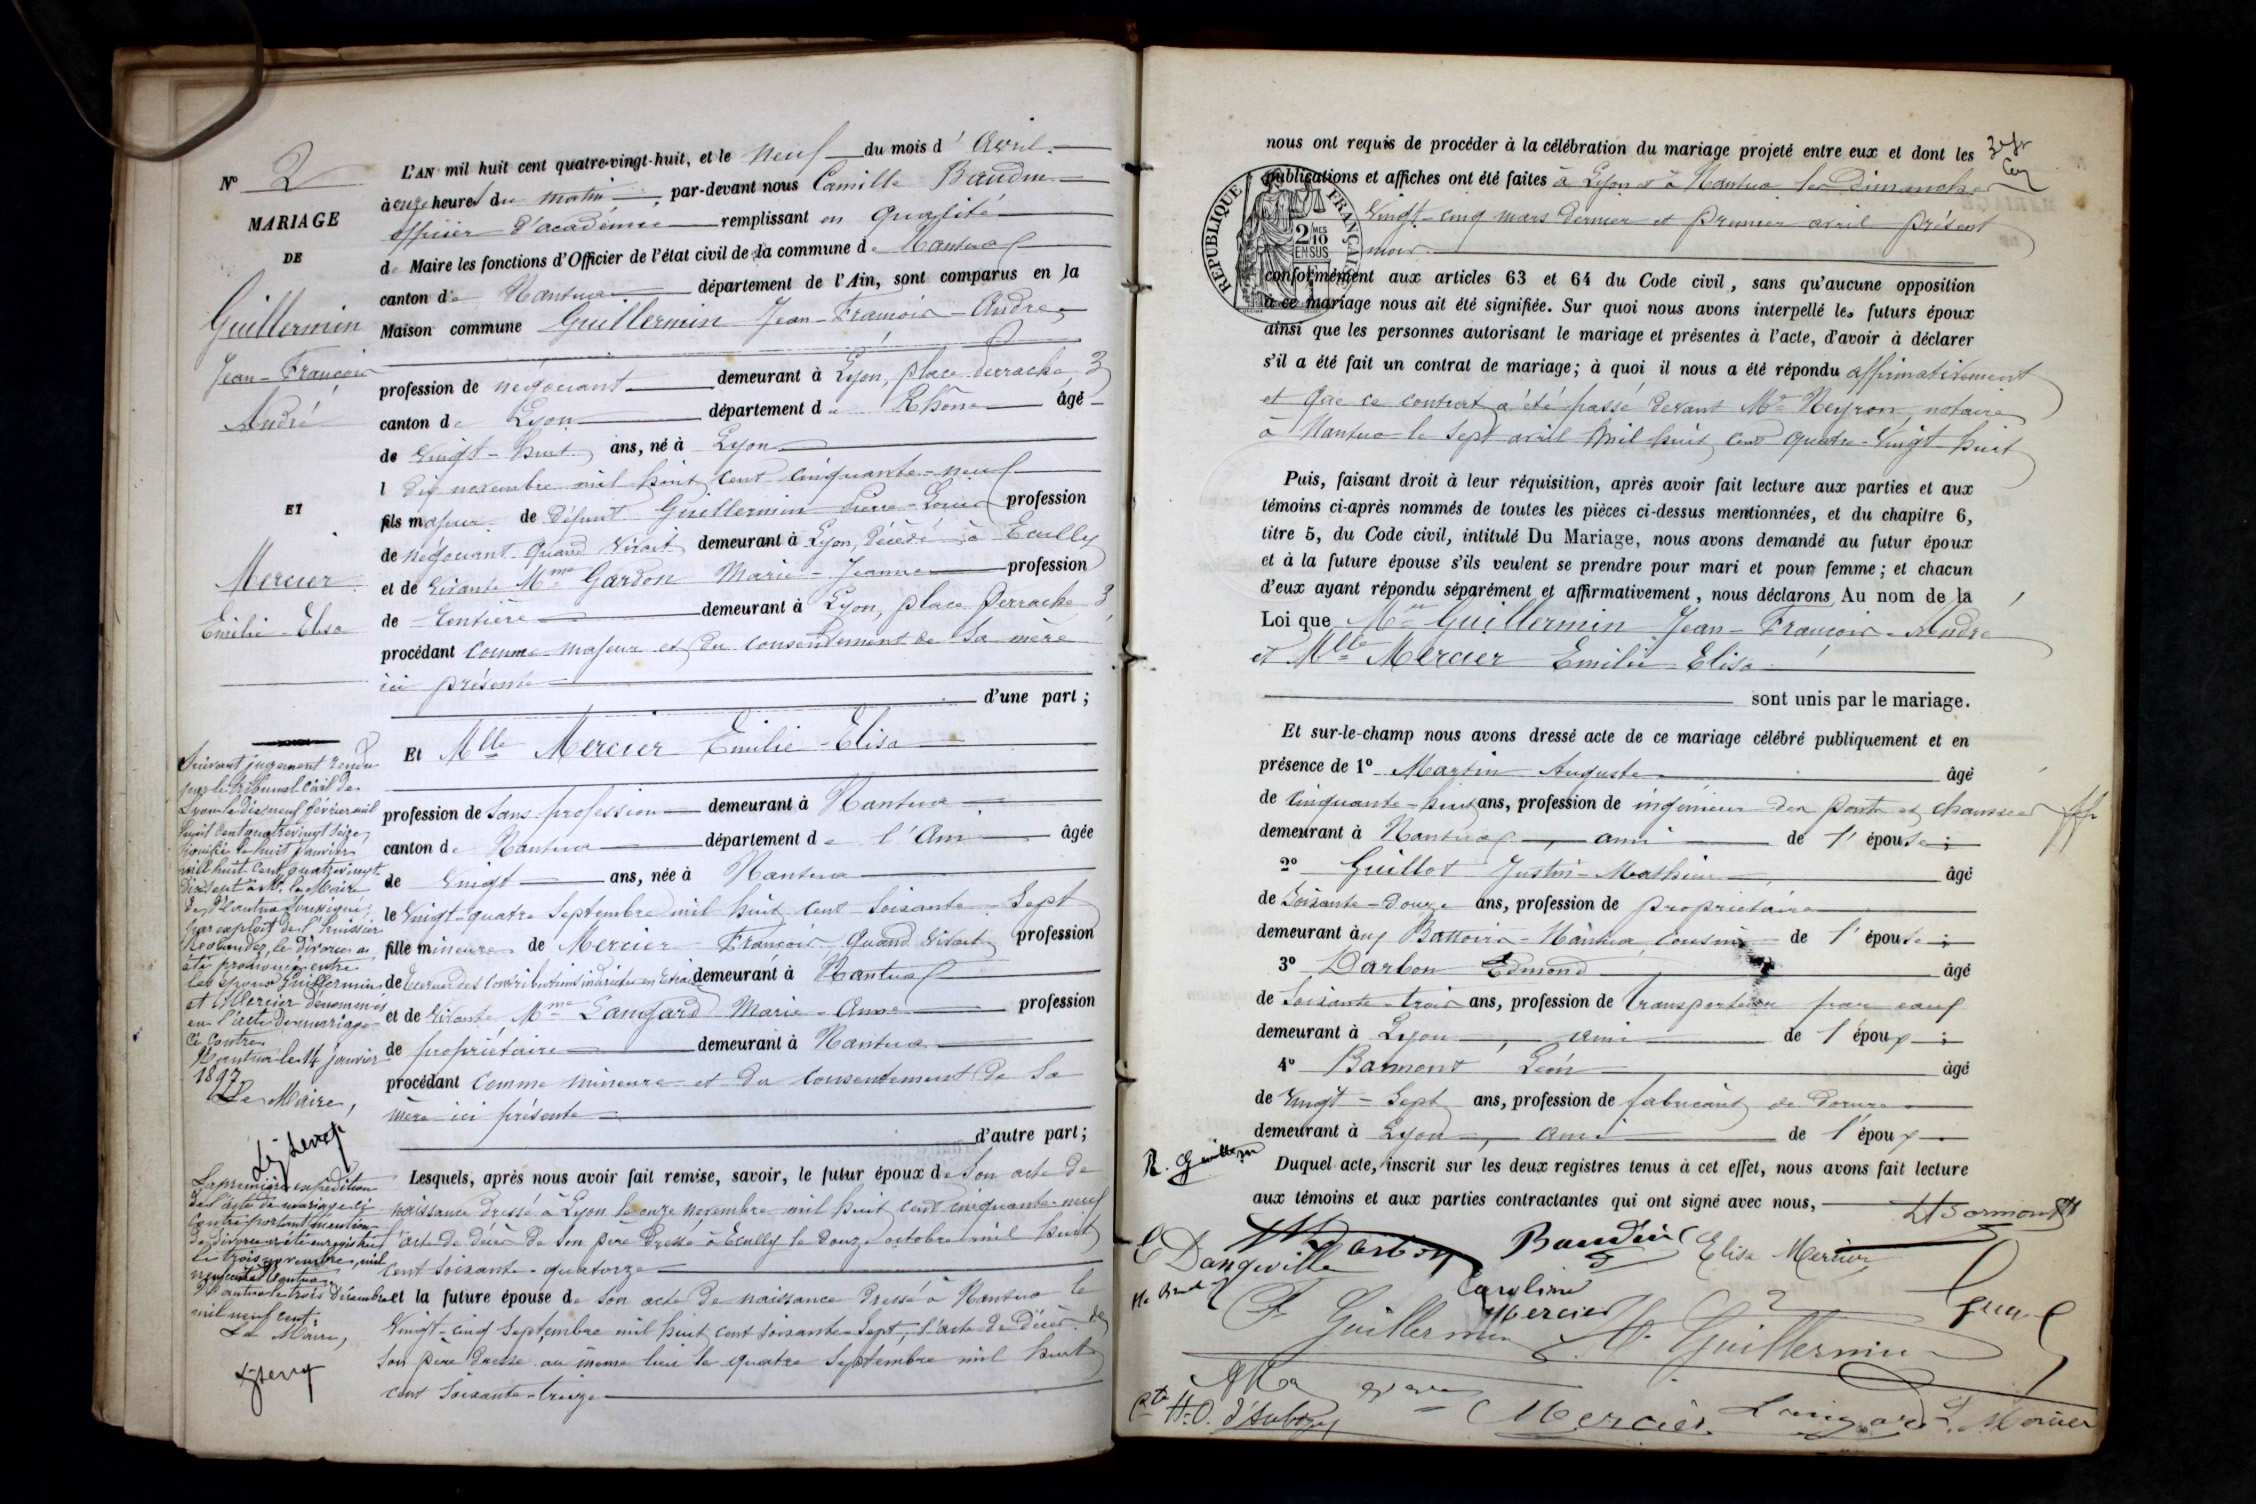 N° 2
MARIAGE
DE
Guillermin
Jean-François
André
ET
Mercier
Emilie-Elisa
Suivant jugement rendu
par le tribunal civil de
Lyon le dix neuf février mil
huit cent quatre vingt seize,
signifié le huit janvier
mil huit cent quatre vingt
dix sept à Mr le Maire
de Nantua soussigné,
par exploit de l'huissier
le divorce a
été prononcé entre
les époux Guillermin
et Mercier dénommés
en l'acte de mariage
ci contre.
Nantua le 14 janvier
1897
Le Maire,
La première expédition
de l'acte de mariage ci
contre portant mention
de divorce a été enregistrée
le trois novembre mil
neuf cent à Nantua.
Nantua le trois décembre
mil neuf cent.
Le Maire,
L'AN mil huit cent quatre-vingt-huit, et le neuf du mois d'Avril
à onze heures du matin, par-devant nous Camille Baudin
officier d'académie remplissant en qualité
de Maire les fonctions d'Officier de l'état civil de la commune de Nantua
canton de Nantua département de l'Ain, sont comparus en la
Maison commune Guillermin Jean-François-André
profession de négociant demeurant à Lyon, place Perrache 3
canton de Lyon département de Rhône âgé
de vingt-huit ans, né à Lyon
l dix novembre mil huit cent cinquante-neuf
fils majeur de défunt Guillermin Pierre-Louis profession
de négociant quand vivait demeurant à Lyon, décédé à Ecully
et de vivante Mme Gardon Marie-Jeanne profession
de rentière demeurant à Lyon, place Perrache 3
procédant comme majeur et du consentement de sa mère
ici présente
d'une part ;
Et Mlle Mercier Emilie-Elisa
profession de sans profession demeurant à Nantua
canton de Nantua département de l'Ain âgée
de vingt ans, née à Nantua
le vingt-quatre septembre mil huit cent soixante-sept
fille mineure de Mercier François quand vivait profession
de receveur des contributions indirectes en retraite demeurant à Nantua
et de vivante Mme Sangard Marie-Anne profession
de propriétaire demeurant à Nantua
procédant comme mineure et du consentement de sa
mère ici présente
d'autre part ;
Lesquels, après nous avoir fait remise, savoir, le futur époux de son acte de
naissance dressé à Lyon le onze novembre mil huit cent cinquante-neuf
l'acte de décès de son père dressé à Ecully le douze octobre mil huit
cent soixante-quatorze
et la future épouse de son acte de naissance dressé à Nantua le
vingt-cinq septembre mil huit cent soixante-sept, l'acte de décès de
son père dressé au même lieu le quatre septembre mil huit
cent soixante-treize
nous ont requis de procéder à la célébration du mariage projeté entre eux et dont les
publications et affiches ont été faites à Lyon et à Nantua les Dimanches
vingt-cinq mars dernier et premier avril présent
mois
RÉPUBLIQUE FRANÇAISE
2/10 MES
EN SUS
conformément aux articles 63 et 64 du Code civil, sans qu'aucune opposition
à ce mariage nous ait été signifiée. Sur quoi nous avons interpellé les futurs époux
ainsi que les personnes autorisant le mariage et présentes à l'acte, d'avoir à déclarer
s'il a été fait un contrat de mariage ; à quoi il nous a été répondu affirmativement
et que ce contrat a été passé devant Me Neyron, notaire
à Nantua le sept avril mil huit cent quatre-vingt huit
Puis, faisant droit à leur réquisition, après avoir fait lecture aux parties et aux
témoins ci-après nommés de toutes les pièces ci-dessus mentionnées, et du chapitre 6,
titre 5, du Code civil, intitulé Du Mariage, nous avons demandé au futur époux
et à la future épouse s'ils veulent se prendre pour mari et pour femme ; et chacun
d'eux ayant répondu séparément et affirmativement, nous déclarons Au nom de la
Loi que Mr Guillermin Jean-François-André
et Mlle Mercier Emilie-Elisa
sont unis par le mariage.
Et sur-le-champ nous avons dressé acte de ce mariage célébré publiquement et en
présence de 1° Martin Auguste âgé
de cinquante-huit ans, profession de ingénieur des ponts et chaussées
demeurant à Nantua, ami de l'épouse ;
2° Guillot Justin-Mathieu âgé
de soixante-douze ans, profession de propriétaire
demeurant aux Battoirs-Nantua cousin de l'épouse ;
3° Darbon Edmond âgé
de soixante-trois ans, profession de transporteur par eau
demeurant à Lyon, ami de l'époux ;
4° Barmont Léon âgé
de vingt-sept ans, profession de fabricant de dorures
demeurant à Lyon, ami de l'époux
Duquel acte, inscrit sur les deux registres tenus à cet effet, nous avons fait lecture
aux témoins et aux parties contractantes qui ont signé avec nous,
R. Guillermin
LBarmont
Dangeville
Darbon
Baudin
Elisa Mercier
Caroline
Mercier
F. Guillermin
Guillermin
H. O. d'Aubigny
Mercier
Sangard
Mercier